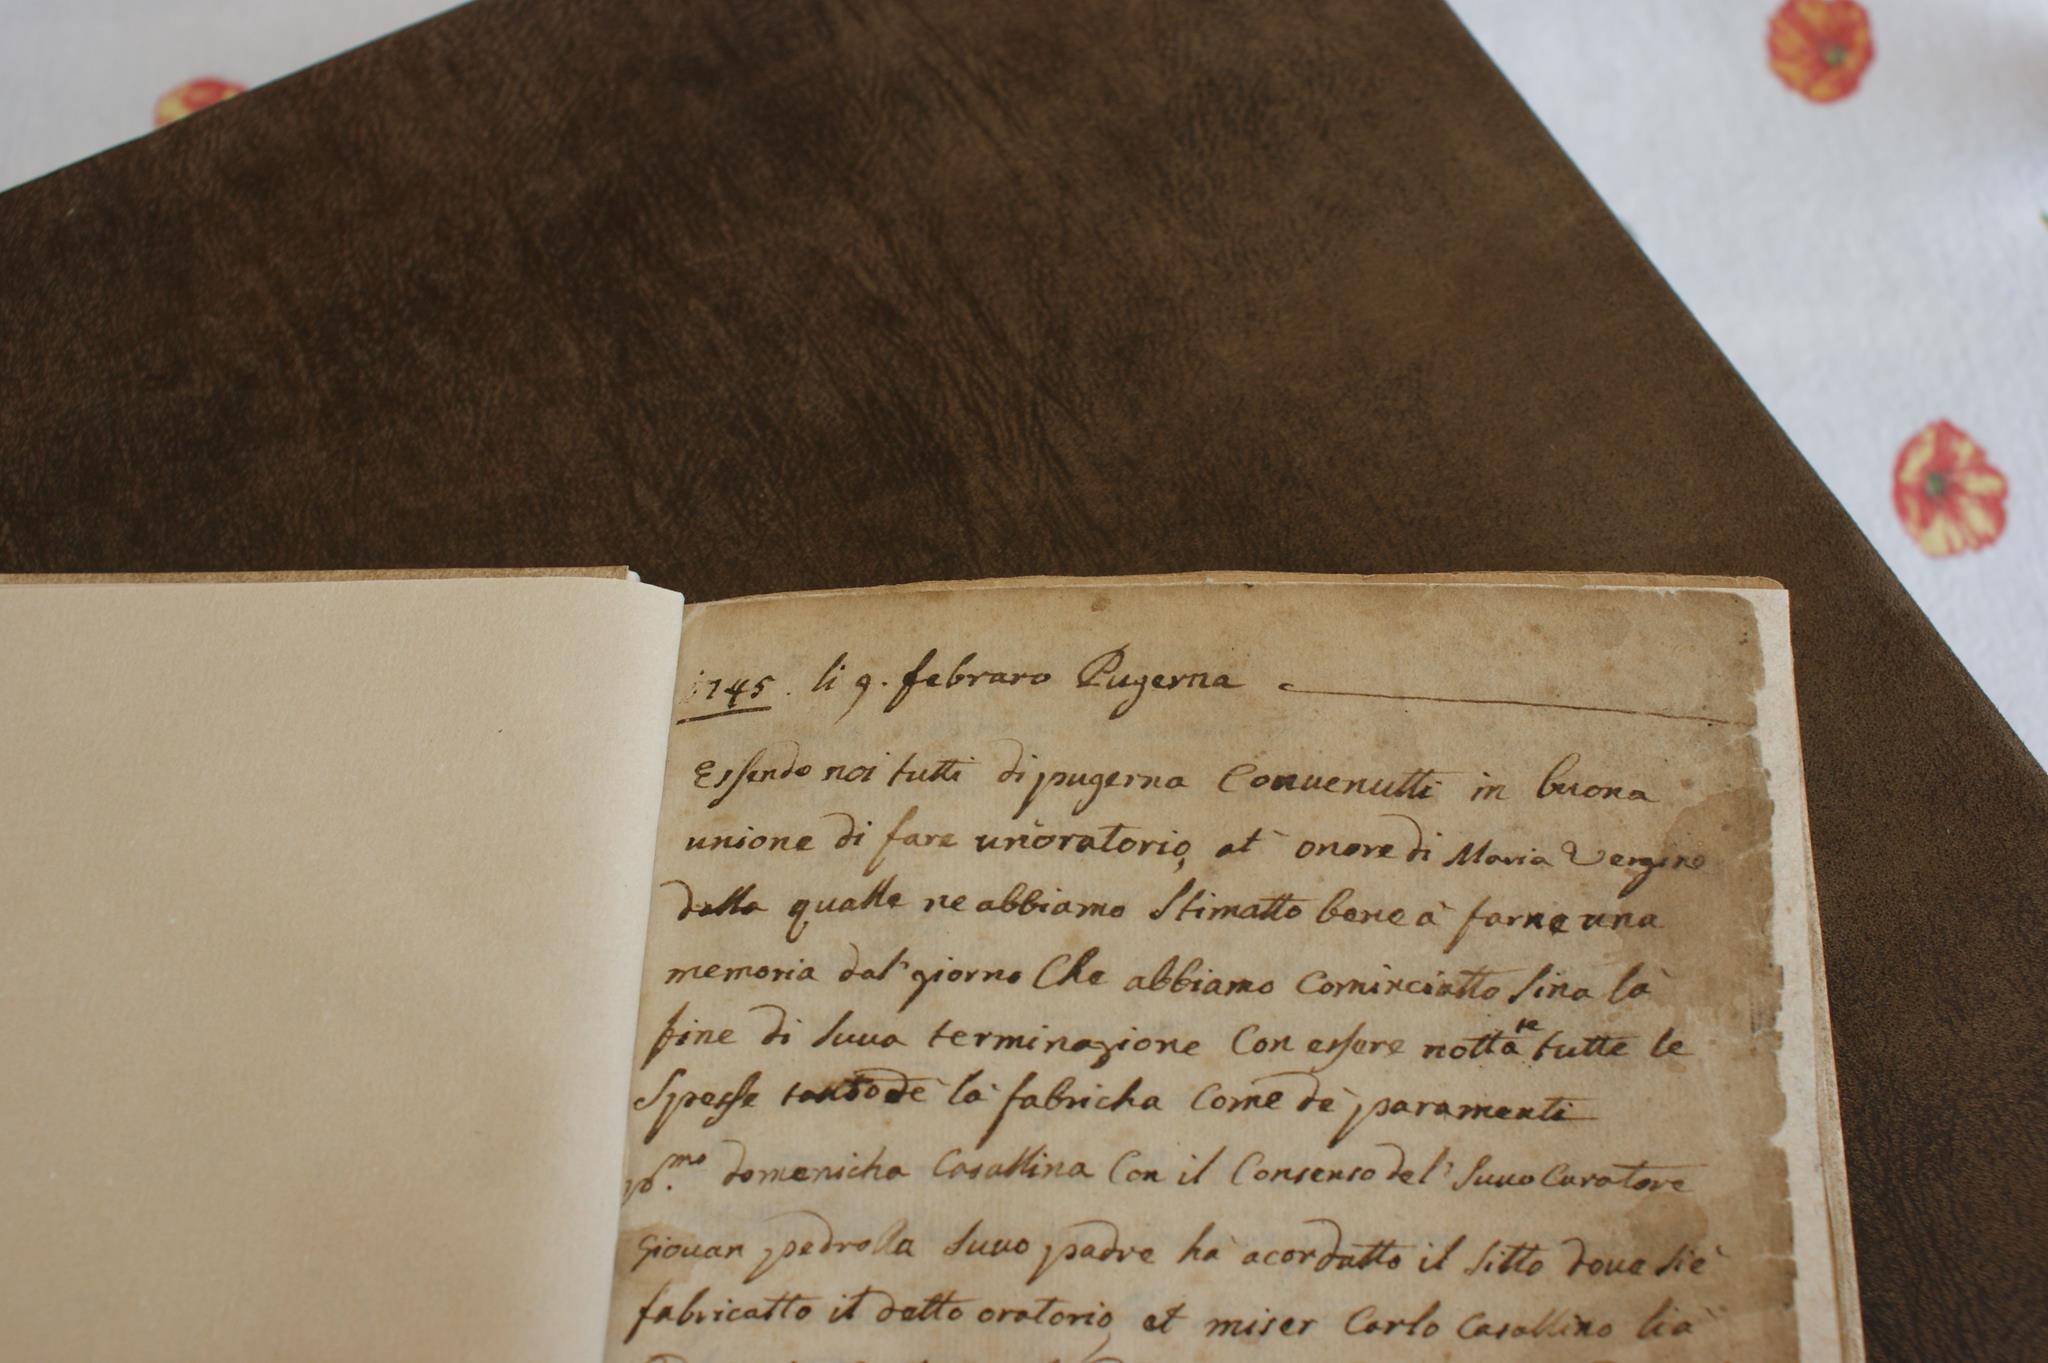 1745. li 9. febraro Pugerna
Essendo noi tutti di pugerna Convenutti in buona
unione di fare un'oratorio, at' onore di Maria Vergine
della qualle ne abbiamo Stimatto bene à farne una
memoria dal' giorno Che abbiamo Cominciatto Sina là
fine di Suua terminazione Con essere notta te tutte le
Spesse tanto de là fabricha Come dè paramenti
p.mo domenicha Casallina Con il Consenso del' Suuo Curatore
Giouan pedrolla Suuo padre hà acordatto il Sitto doue si è
fabricatto il detto oratorio, et miser Carlo Casallino lià